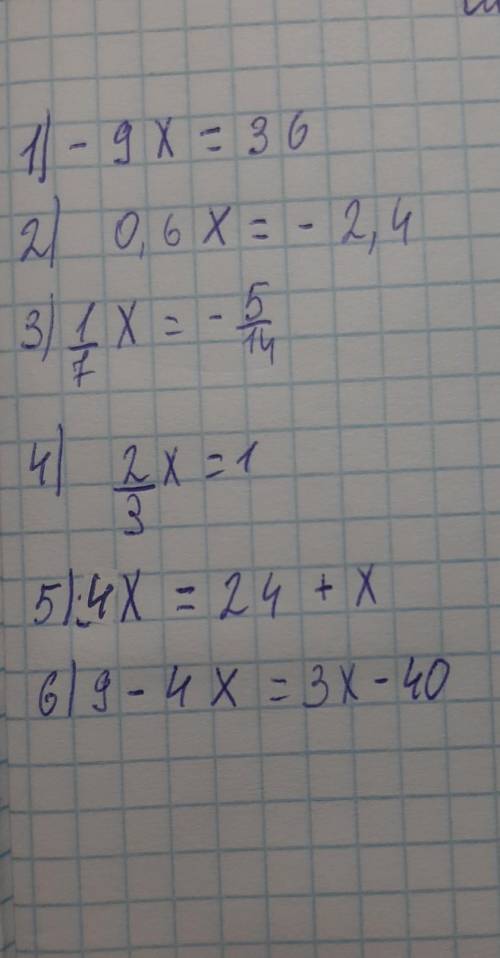 1) - 9x = 36
2) 0,6x = - 2,4
3) 1/7 x = - 5/14
4) 2/3 x = 1
5) 4x = 24 + x
6) 9 - 4x = 3x - 40